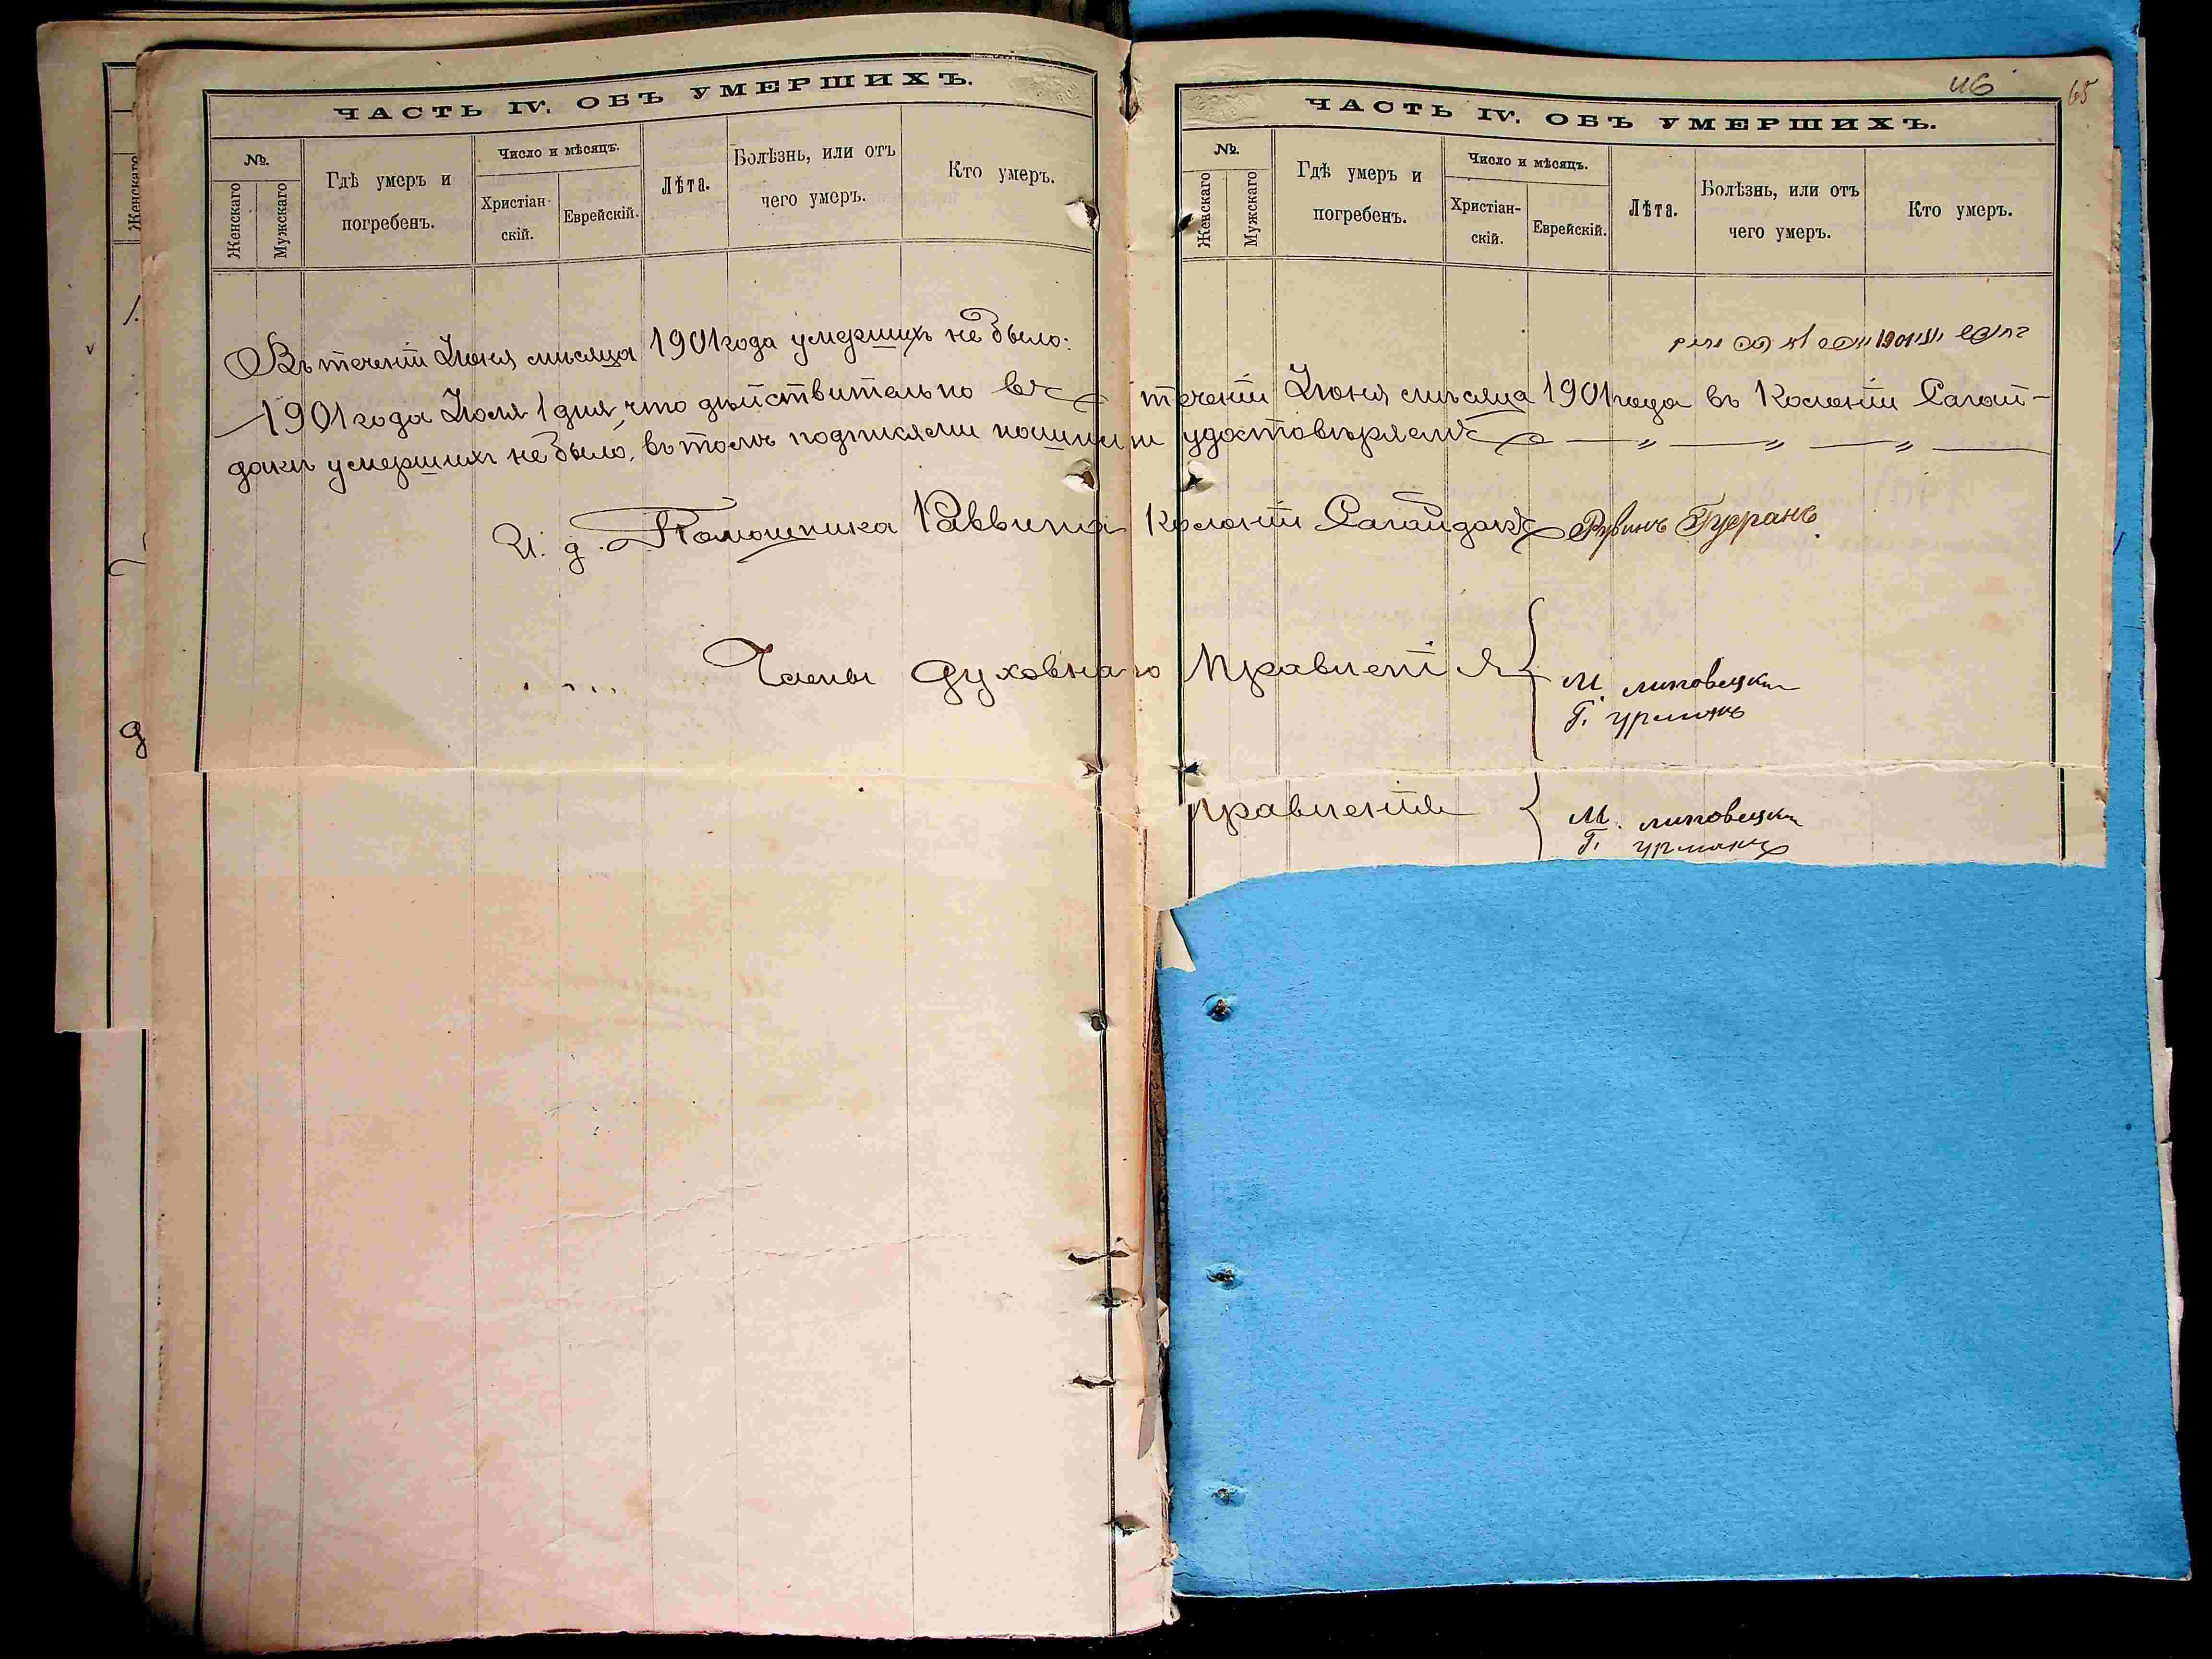 ЧАСТЬ IV. ОБЪ УМЕРШИХЪ.
№.
Женскаго
Мужскаго
Гдѣ умеръ и
погребенъ.
Число и мѣсяцъ.
Христіан-
скій.
Еврейскій.
Лѣта.
Болѣзнь, или отъ
чего умеръ.
Кто умеръ.
Въ теченіи Іюня мѣсяца 1901 года умершихъ не было:
1901 года Іюля 1 дня что дѣйствительно въ теченіи Іюня мѣсяца 1901 года въ Колоніи Сагай-
дакъ умершихъ не было, въ томъ подписями нашими удостовѣряемъ — „ — „ — „ —
И. д. Помошника Раввина Колоніи Сагайдакъ Рувинъ
Члены Духовнаго Правленія
М. Липовецкій
Г. Урманъ
46
65
ЧАСТЬ IV. ОБЪ УМЕРШИХЪ.
№.
Женскаго
Мужскаго
Гдѣ умеръ и
погребенъ.
Число и мѣсяцъ.
Христіан-
скій.
Еврейскій.
Лѣта.
Болѣзнь, или отъ
чего умеръ.
Кто умеръ.
1901
правленія
М. Липовецкій
Г. Урманъ
Женскаго